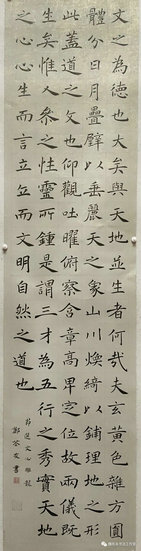 文之為德也大矣與天地並生者何哉夫玄黃色雜方圓
體分日月疊璧以垂麗天之象山川煥綺以鋪理地之形
此蓋道之文也仰觀吐曜俯察含章高卑定位故兩儀既
生矣惟人參之性靈所鍾是謂三才為五行之秀實天地
之心心生而言立言立而文明自然之道也
節選文心雕龍
鄭友書